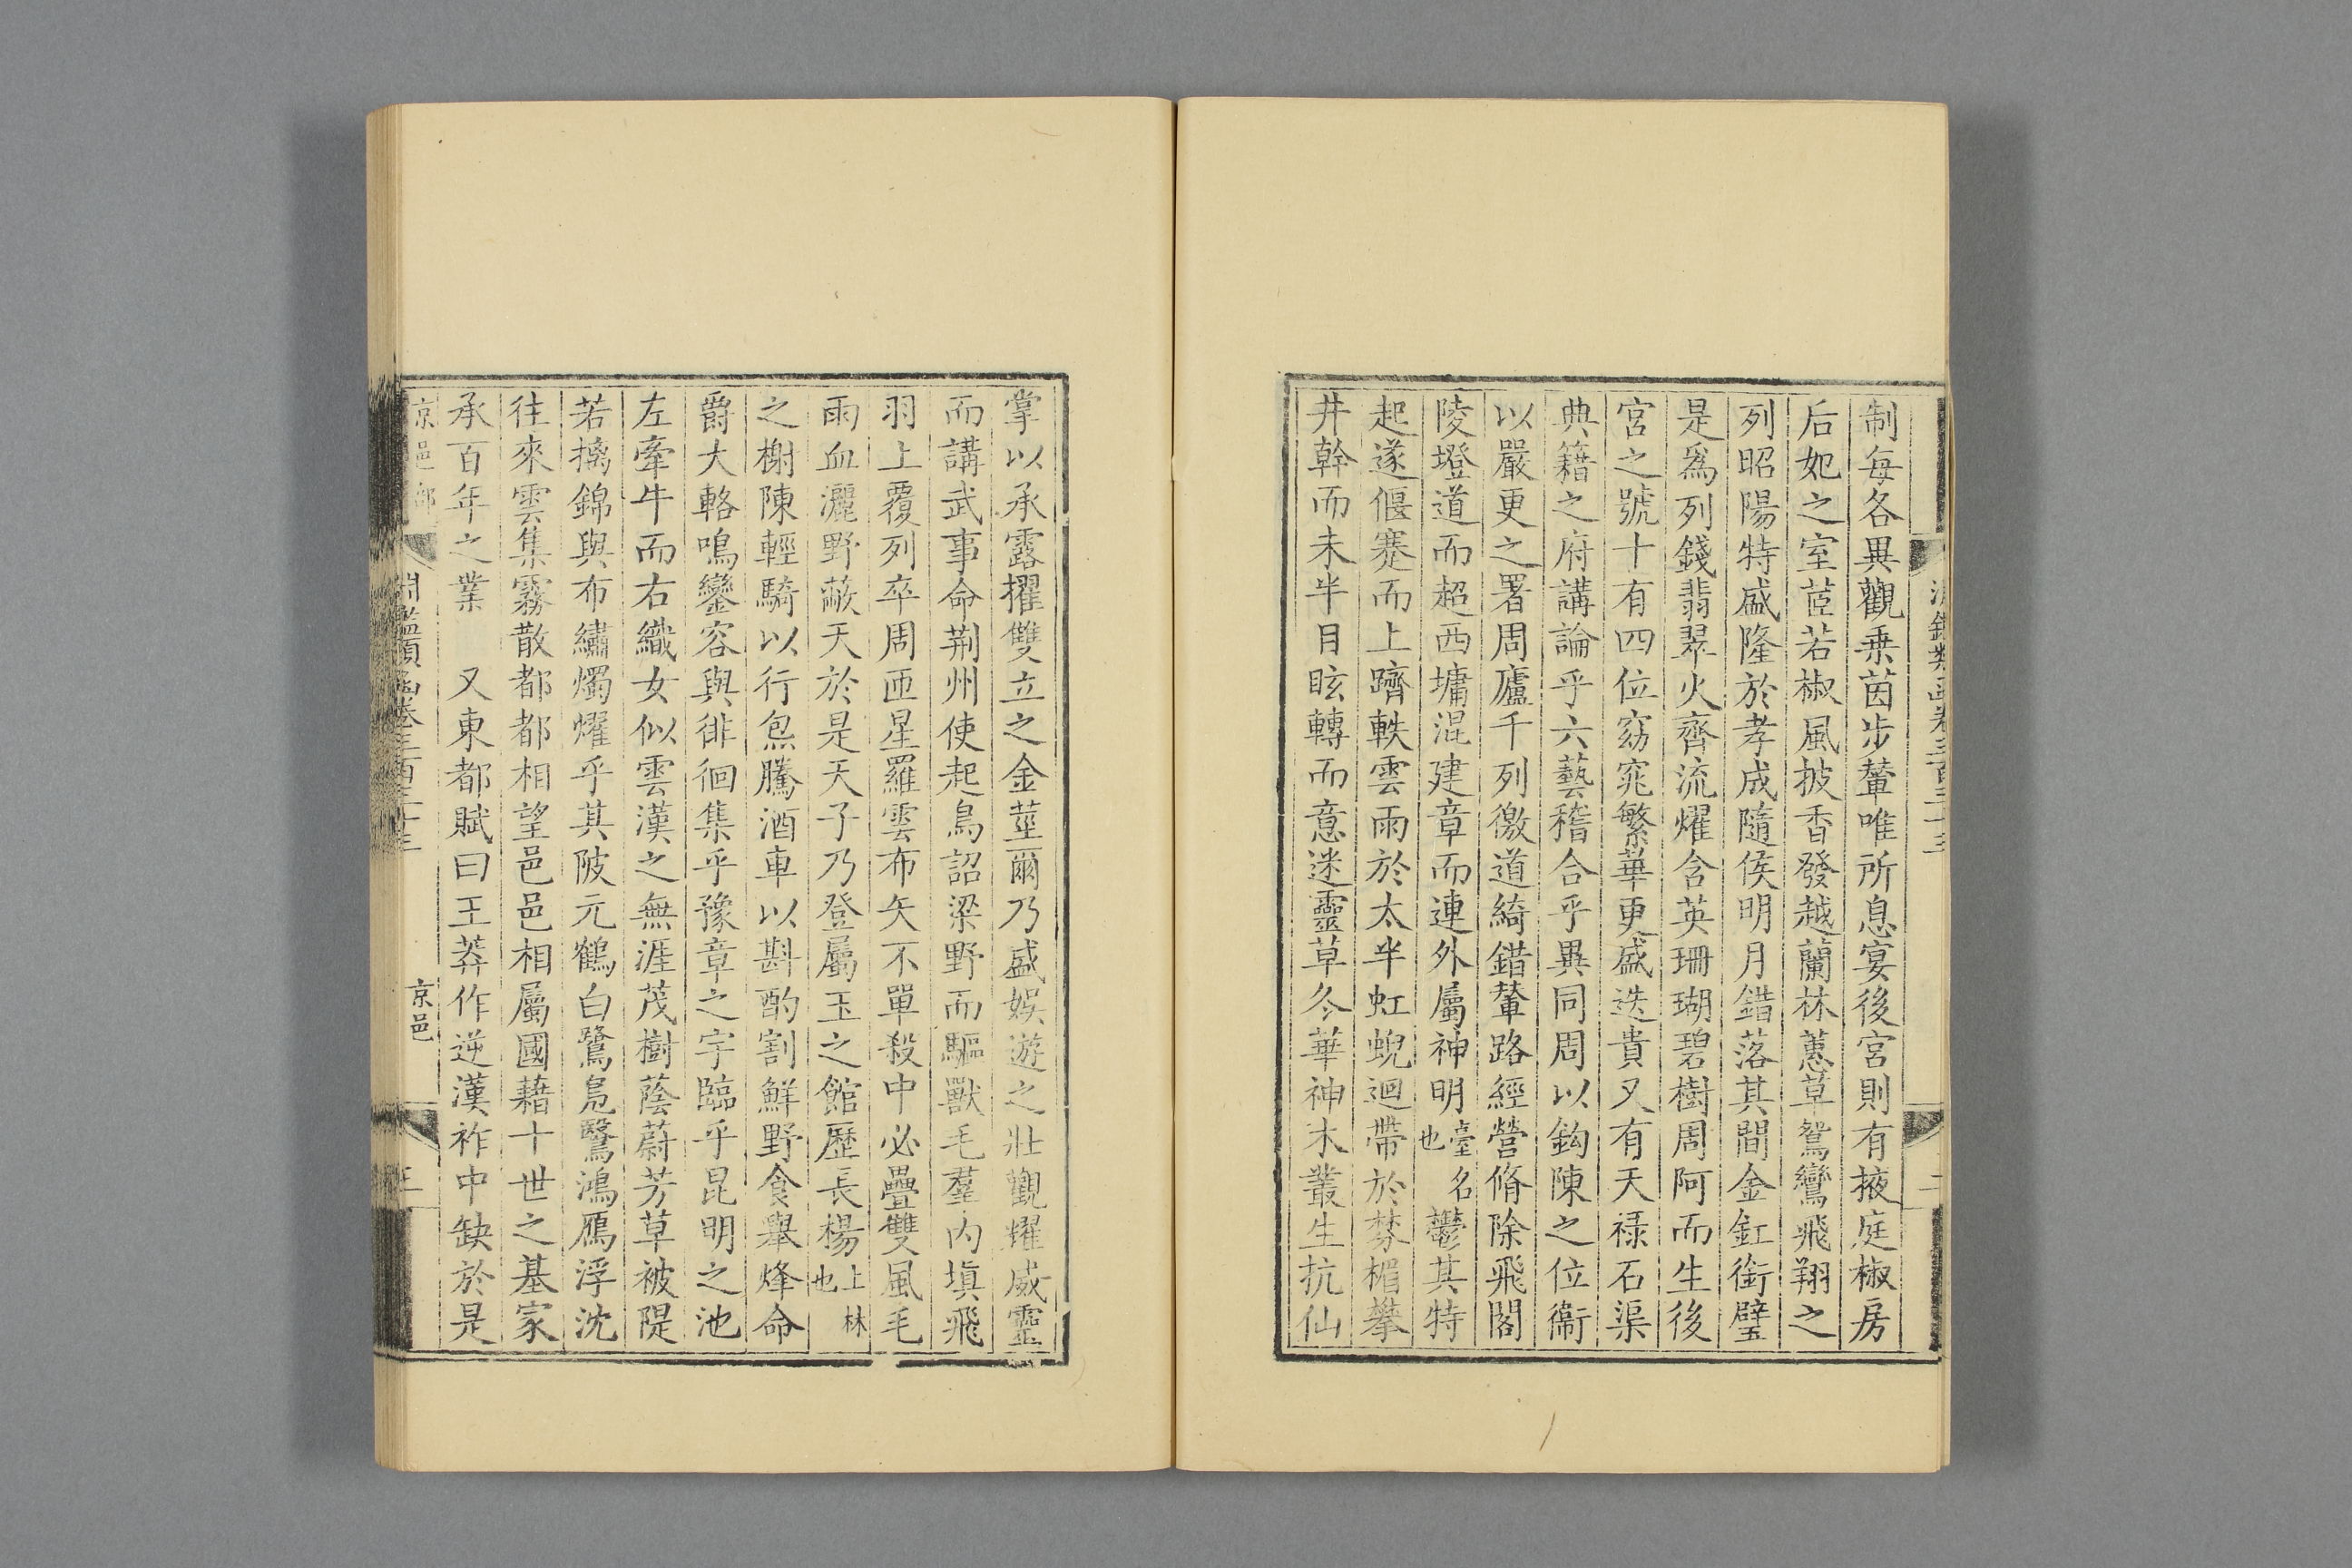 制每各異觀乗茵步輦唯所息宴後宮則有掖庭椒房
后妃之室茝若椒風披香發越蘭林蕙草鴛鸞飛翔之
列昭陽特盛隆於孝成隨侯明月錯落其間金釭銜璧
是爲列錢翡翠火齊流燿含英珊瑚碧樹周阿而生後
宮之號十有四位窈窕繁華更盛迭貴又有天禄石渠
典籍之府講論乎六藝稽合乎異同周以鈎陳之位衞
以嚴更之署周廬千列徼道綺錯輦路經營脩除飛閣
陵墱道而超西墉混建章而連外屬神明臺名也鬱其特
起遂偃蹇而上躋軼雲雨於太半虹蜺迴帶於棼楣攀
井幹而未半目眩轉而意迷靈草冬華神木叢生抗仙
掌以承露擢雙立之金莖爾乃盛娱遊之壯觀耀威靈
而講武事命荆州使起鳥詔梁野而驅獸毛羣内塡飛
羽上覆列卒周匝星羅雲布矢不單殺中必疊雙風毛
雨血灑野蔽天於是天子乃登屬玉之館歷長楊上林也
之榭陳輕騎以行炰騰酒車以斟酌割鮮野食舉烽命
爵大輅鳴鑾容與徘徊集乎豫章之宇臨乎昆明之池
左牽牛而右織女似雲漢之無涯茂樹蔭蔚芳草被隄
若摛錦與布繡燭燿乎其陂元鶴白鷺鳬鷖鴻鴈浮沈
往來雲集霧散都都相望邑邑相屬國藉十世之基家
承百年之業　又東都賦曰王莽作逆漢祚中缺於是
京邑部 淵鑑類函卷三百三十三 京邑 三